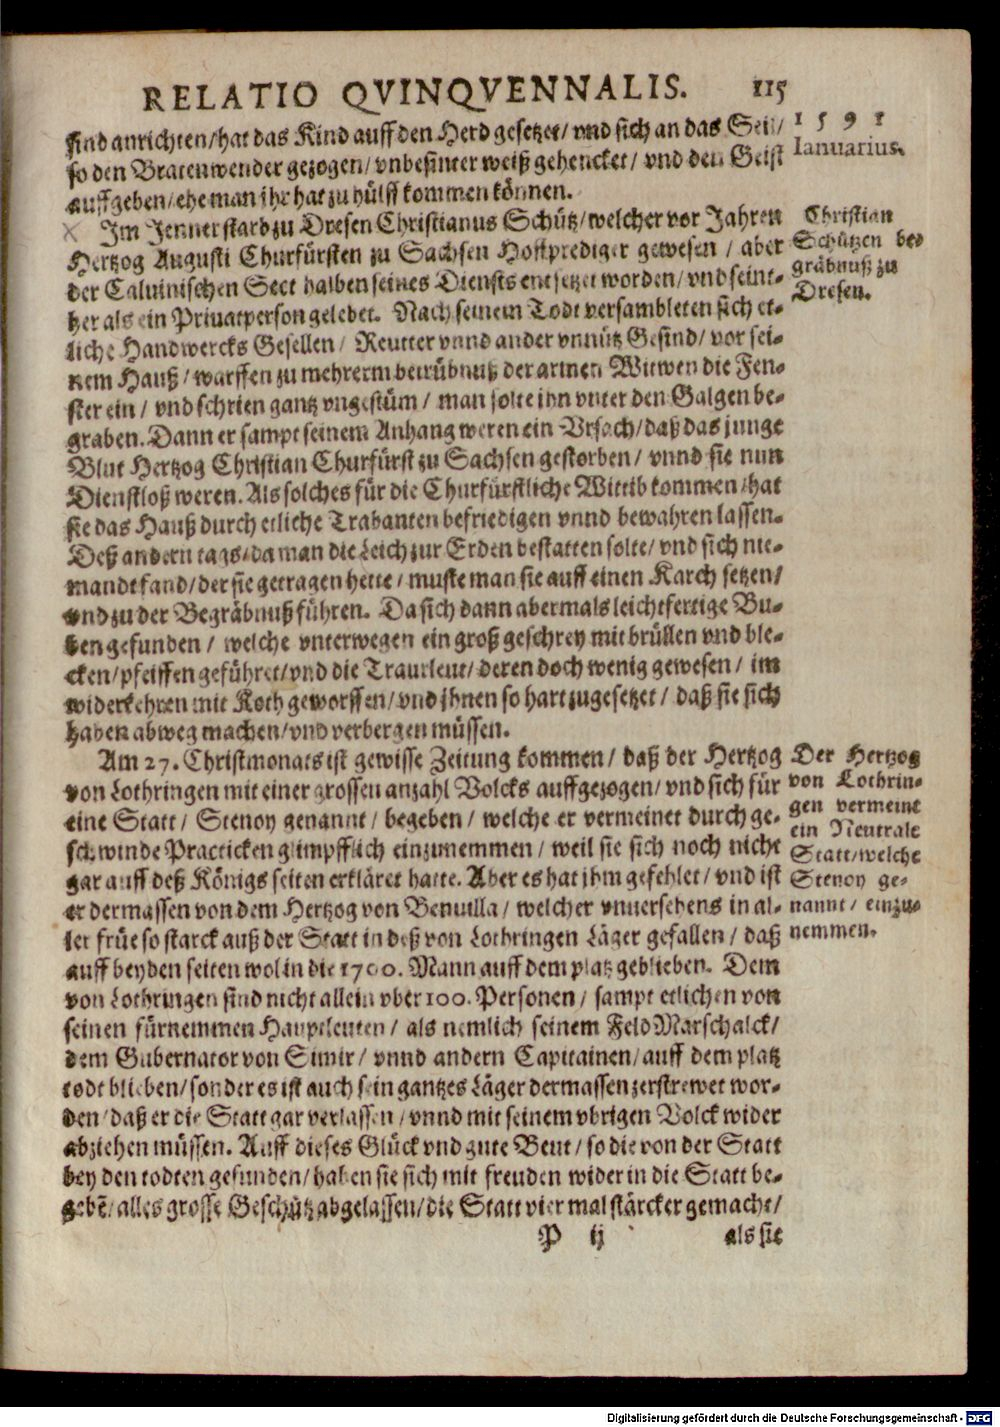 RELATIO QVINQVENNALIS. 115
sind anrichten/ hat das Kind auff den Herd gesetzet/ vnd sich an das Seil/
so den Bratenwender gezogen/ vnbesinter weiß gehencket/ vnd den Geist
auffgeben/ ehe man jhr hat zu hülff kommen können.
1591
Ianuarius.
Im Jenner starb zu Dresen Christianus Schütz/ welcher vor Jahren
Hertzog Augusti Churfürsten zu Sachsen Hoffprediger gewesen / aber
der Caluinischen Sect halben seines Diensts entsetzet worden/ vnd seint-
her als ein Priuatperson gelebet. Nach seinem Todt versambleten sich et-
liche Handwercks Gesellen / Reutter vnnd ander vnnütz Gesind/ vor sei-
nem Hauß / warffen zu mehrerm betrübnuß der armen Witwen die Fen-
ster ein / vnd schrien gantz vngestüm / man solte ihn vnter den Galgen be-
graben. Dann er sampt seinem Anhang weren ein Vrsach/ daß das junge
Blut Hertzog Christian Churfürst zu Sachsen gestorben/ vnnd sie nun
Dienstloß weren. Als solches für die Churfürstliche Wittib kommen/ hat
sie das Hauß durch etliche Trabanten befriedigen vnnd bewahren lassen.
Deß andern tags/ da man die Leich zur Erden bestatten solte/ vnd sich nie-
mandt fand/ der sie getragen hette / muste man sie auff einen Karch setzen/
vnd zu der Begräbnuß führen. Da sich dann abermals leichtfertige Bu-
ben gefunden / welche vnterwegen ein groß geschrey mit brüllen vnd ble-
cken/ pfeiffen geführet/ vnd die Traurleut/ deren doch wenig gewesen / im
widerkehren mit Koth geworffen/ vnd jhnen so hart zugesetzet / daß sie sich
haben abweg machen/ vnd verbergen müssen.
Christian
Schützen be-
gräbnuß zu
Dresen.
Am 27. Christmonats ist gewisse Zeitung kommen / daß der Hertzog
von Lothringen mit einer grossen anzahl Volcks auffgezogen/ vnd sich für
eine Statt/ Stenoy genannt / begeben / welche er vermeinet durch ge-
schwinde Practicken glimpfflich einzunemmen / weil sie sich noch nicht
gar auff deß Königs seiten erkläret hatte. Aber es hat jhm gefehlet/ vnd ist
er dermassen von dem Hertzog von Benuilla/ welcher vnuersehens in al-
ler früe so starck auß der Statt in deß von Lothringen Läger gefallen / daß
auff beyden seiten wol in die 1700. Mann auff dem platz geblieben. Dem
von Lothringen sind nicht allein vber 100. Personen / sampt etlichen von
seinen fürnemmen Hauptleuten / als nemlich seinem Feld Marschalck/
dem Gubernator von Simir/ vnnd andern Capitainen/ auff dem platz
todt blieben/ sonder es ist auch sein gantzes Läger dermassen zerstrewet wor-
den/ daß er die Statt gar verlassen / vnnd mit seinem vbrigen Volck wider
abziehen müssen. Auff dieses Glück vnd gute Beut / so die von der Statt
bey den todten gefunden/ haben sie sich mit freuden wider in die Statt be-
gebẽ/ alles grosse Geschütz abgelassen/ die Statt vier mal stärcker gemacht/
Der Hertzog
von Lothrin-
gen vermeint
ein Neutrale
Statt/ welche
Stenoy ge-
nannt / einzu-
nemmen.
P ij als sie
Digitalisierung gefördert durch die Deutsche Forschungsgemeinschaft - DFG